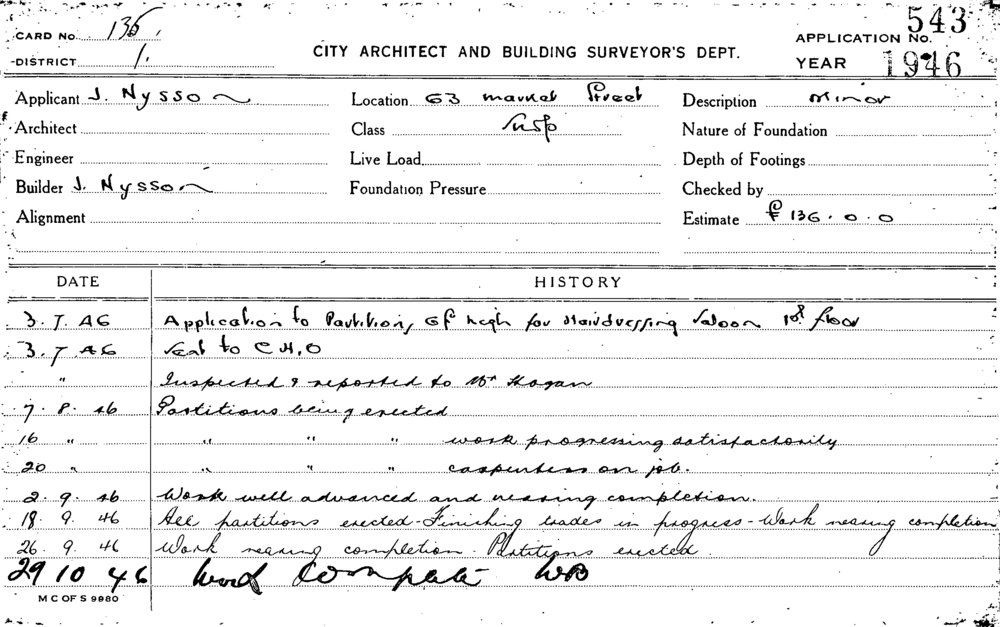 CARD No. 136 543
APPLICATION No.
DISTRICT 1. CITY ARCHITECT AND BUILDING SURVEYOR'S DEPT. YEAR 1946
Applicant J. Nysson Location 63 market Street Description Minor
Architect Class Nature of Foundation
Engineer Live Load Depth of Footings
Builder J. Nysson Foundation Pressure Checked by
Alignment Estimate £ 136.0.0
DATE HISTORY
3.7.46 Application to Partition, 6f high for Hairdressing Saloon 1st floor
3.7.46 Sent to C.H.O
" Inspected & reported to Mr Hogan
7.8.46 Partitions being erected
16 " " " " work progressing satisfactorily
20 " " " " carpenters on job.
2.9.46 Work well advanced and nearing completion.
18.9.46 All partitions erected - Finishing trades in progress - Work nearing completion
26.9.46 Work nearing completion. Partitions erected.
29 10 46 Work Complete WB
M C OF S 9980